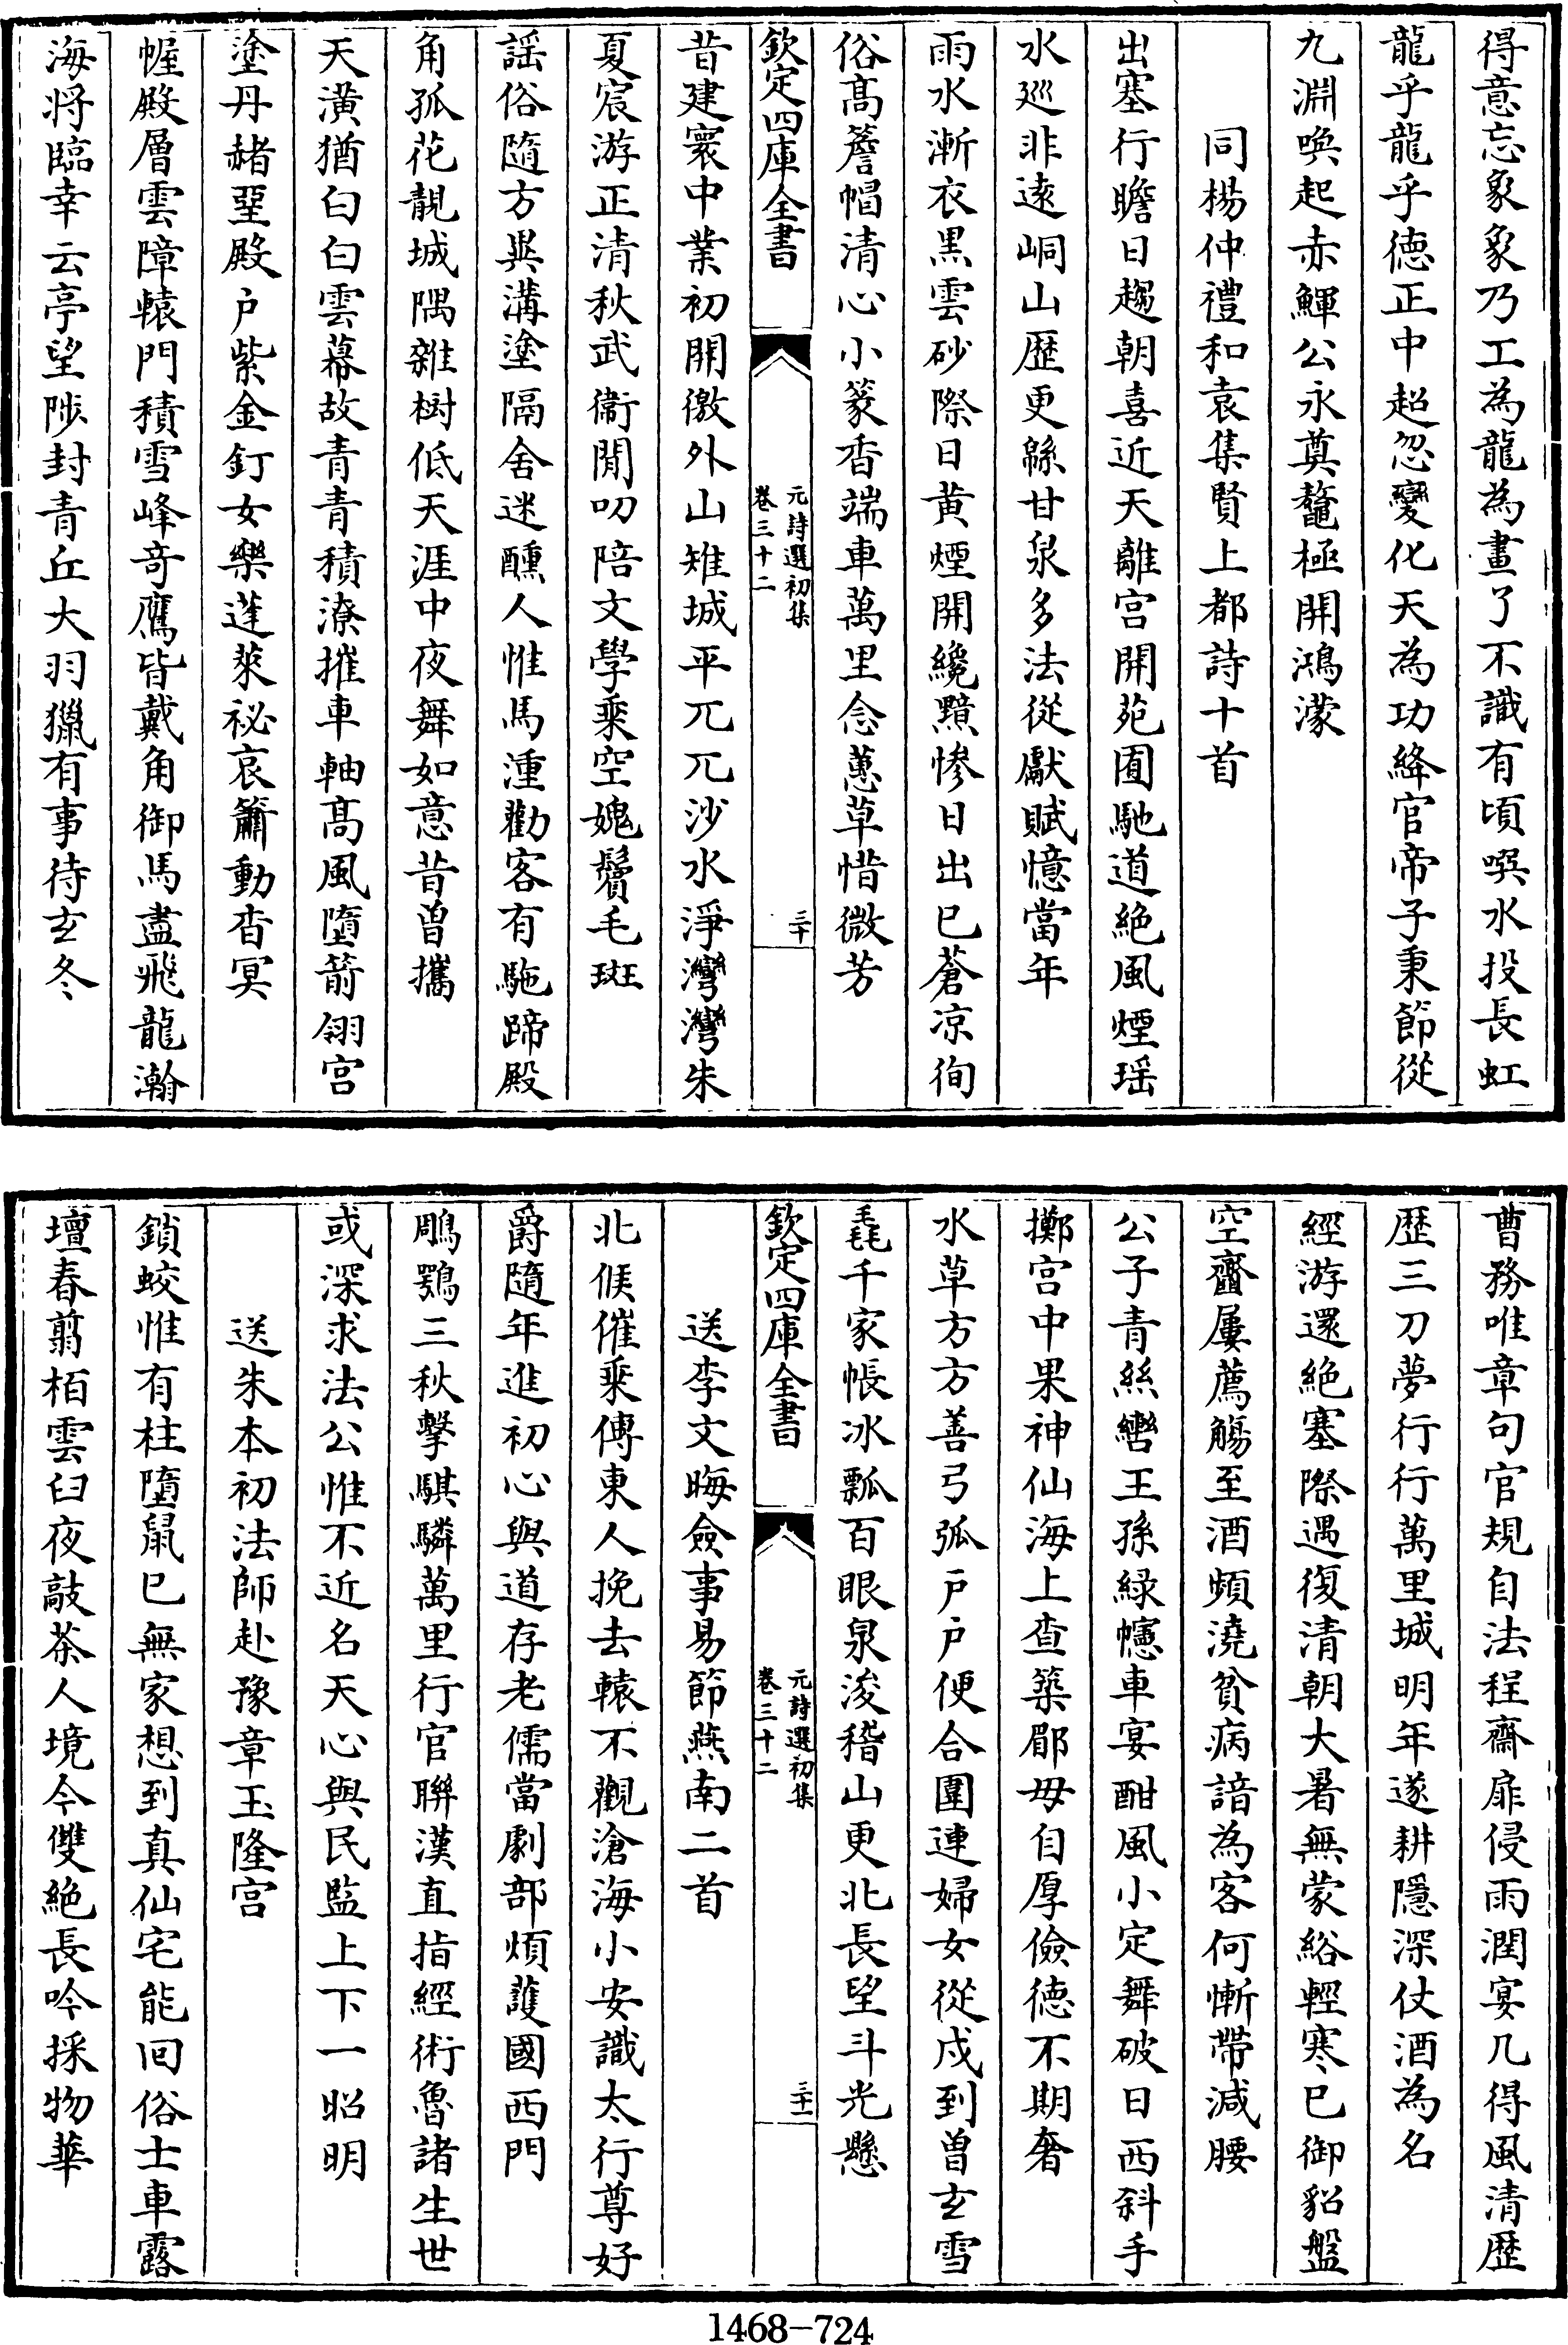 得意忘象象乃工為龍為畫了不識有頃噀水投長虹
龍乎龍乎徳正中超忽變化天為功絳官帝子秉節從
九淵喚起赤鯶公永奠鼇極開鴻濛
同楊仲禮和袁集賢上都詩十首
出塞行瞻日趨朝喜近天離宫開苑囿馳道絶風煙瑶
水巡非逺峒山歴更緜甘泉多法從獻賦憶當年
雨水漸衣黒雲砂際日黄煙開纔黯慘日出已蒼凉徇
俗髙簷帽清心小篆香端車萬里念蕙草惜微芳
欽定四庫全書
元詩選初集
卷三十二
三十
昔建寰中業初開徼外山雉城平兀兀沙水淨灣灣朱
夏宸游正清秋武衞閒叨陪文學乘空媿鬢毛斑
謡俗隨方異溝塗隔舍迷醺人惟馬湩勸客有駞蹄殿
角孤花靚城隅雜樹低天涯中夜舞如意昔曽攜
天潢猶白白雲幕故青青積潦摧車軸髙風墮箭翎宫
塗丹赭堊殿户紫金釘女樂蓬萊祕哀簫動杳冥
幄殿層雲障轅門積雪峰竒鷹皆戴角御馬盡飛龍瀚
海将臨幸云亭望陟封青丘大羽獵有事待玄冬
曹務唯章句官規自法程齋扉侵雨潤宴几得風清歴
歴三刀夢行行萬里城明年遂耕隱深仗酒為名
經游還絶塞際遇復清朝大暑無蒙綌輕寒已御貂盤
空齏屢薦觴至酒頻澆貧病諳為客何慚帶減腰
公子青絲轡王孫緑幰車宴酣風小定舞破日西斜手
擲宫中果神仙海上查築郿毋自厚儉徳不期奢
水草方方善弓弧户户便合圍連婦女從戍到曽玄雪
毳千家帳冰瓢百眼泉浚稽山更北長望斗光懸
欽定四庫全書
元詩選初集
卷三十二
三十一
送李文晦僉事易節燕南二首
北候催乗傳東人挽去轅不觀滄海小安識太行尊好
爵隨年進初心與道存老儒當劇部煩護國西門
鵰鶚三秋擊騏驎萬里行官聨漢直指經術魯諸生世
或深求法公惟不近名天心與民監上下一昭明
送朱本初法師赴豫章玉隆宫
鎖蛟惟有柱墮鼠已無家想到真仙宅能回俗士車露
壇春翦栢雲臼夜敲茶人境今雙絶長吟採物華
1468-724